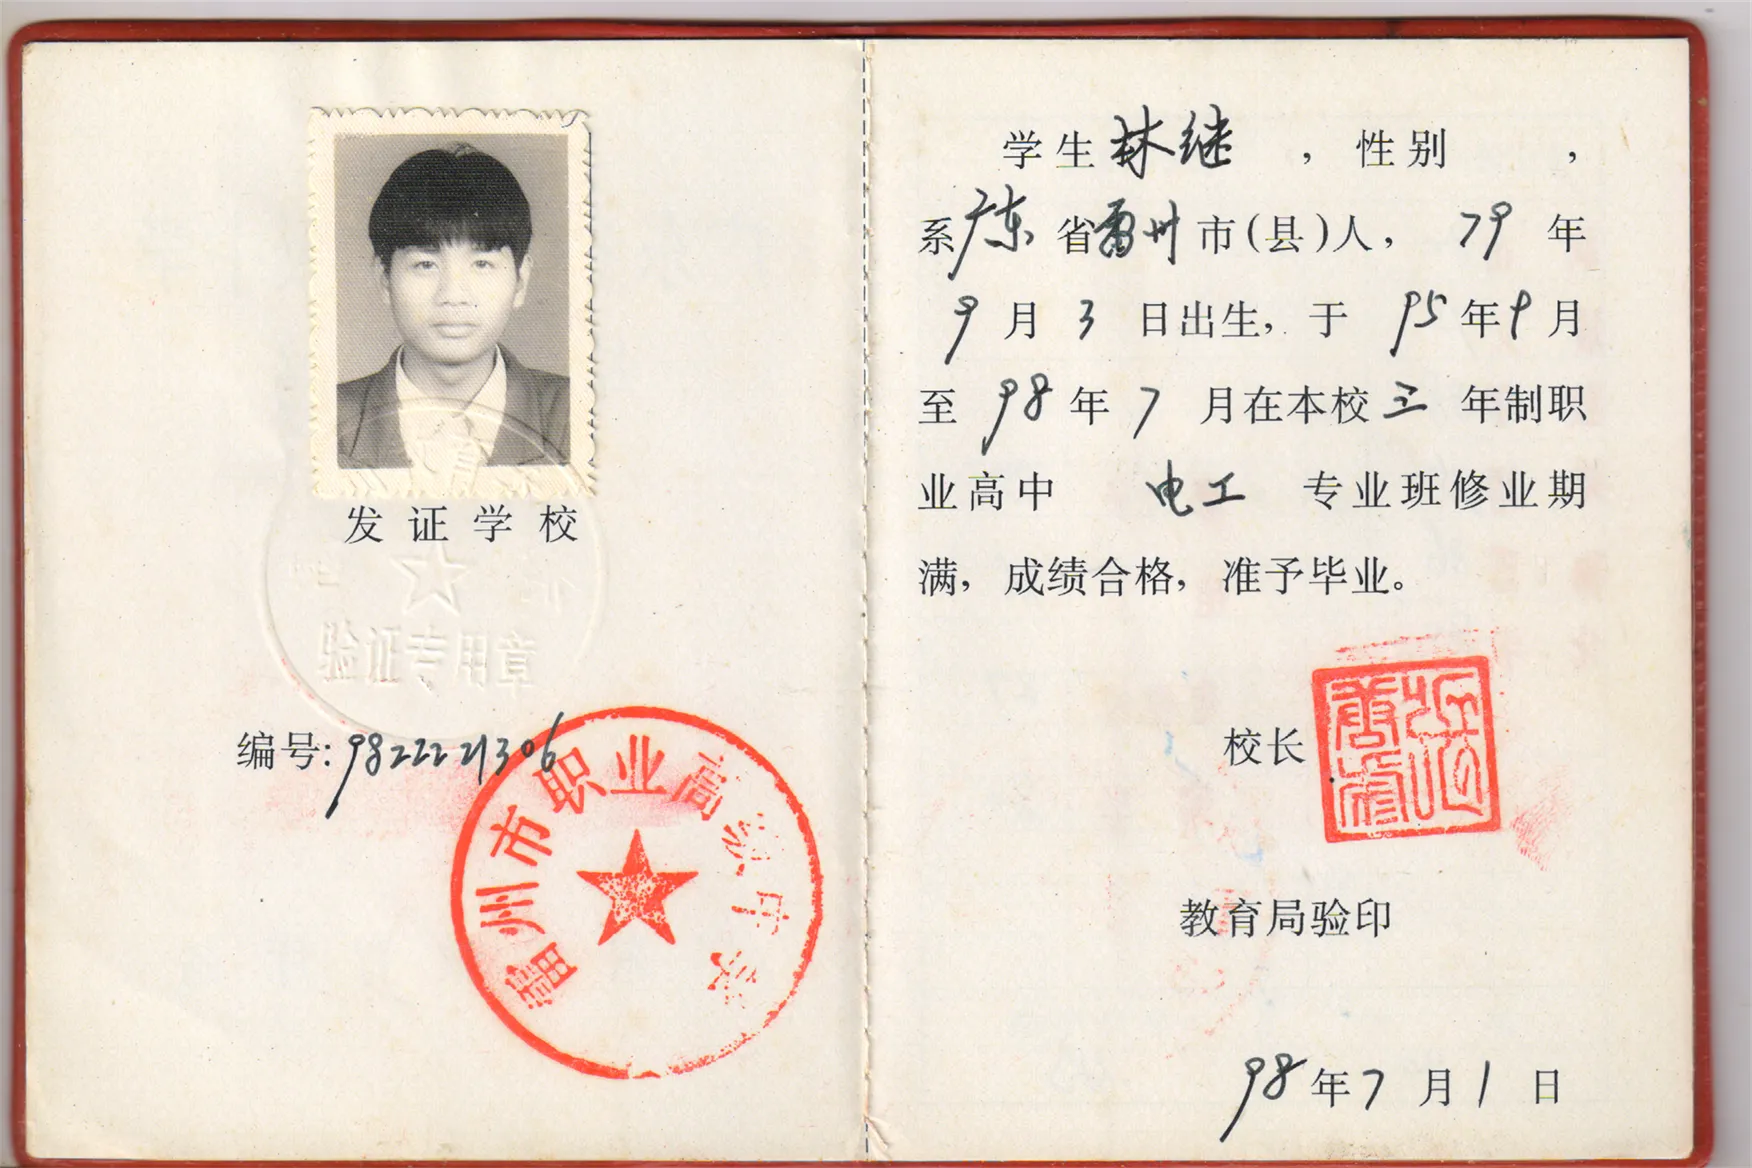 发证学校
验证专用章
编号:9822221306
雷州市职业高级中学
学生林继,性别,
系广东省雷州市(县)人,79年
9月3日出生,于95年9月
至98年7月在本校三年制职
业高中电工专业班修业期
满,成绩合格,准予毕业。
校长
教育局验印
98年7月1日